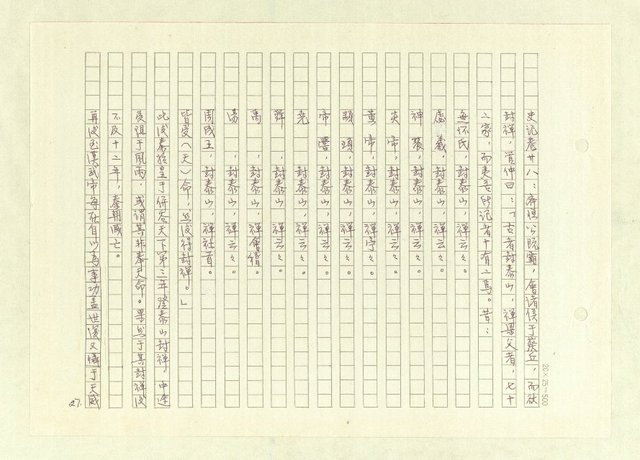 史記卷廿八：齊桓公既霸，會諸侯于葵丘，而欲
封禪，管仲曰：「古者封泰山，禪梁父者，七十
二家，而夷吾所記者十有二焉。昔：
無怀氏，封泰山，禪云々。
虙羲，封泰山，禪云々。
神農，封泰山，禪云々。
炎帝，封泰山，禪云々。
黃帝，封泰山，禪亭々。
顓頊，封泰山，禪云々。
帝嚳，封泰山，禪云々。
堯，封泰山，禪云々。
舜，封泰山，禪云々。
禹，封泰山，禪會稽。
湯，封泰山，禪云々。
周成王，封泰山，禪社首。
皆受（天）命，然後得封禪。」
此後秦始皇于併吞天下第三年登泰山封禪，中途
受阻于風雨，或謂其非奉天命。果然于其封禪後
不及十二年，秦朝滅亡。
再後至漢武帝每在自以為事功蓋世後又懾于天威
27.
20×25=500